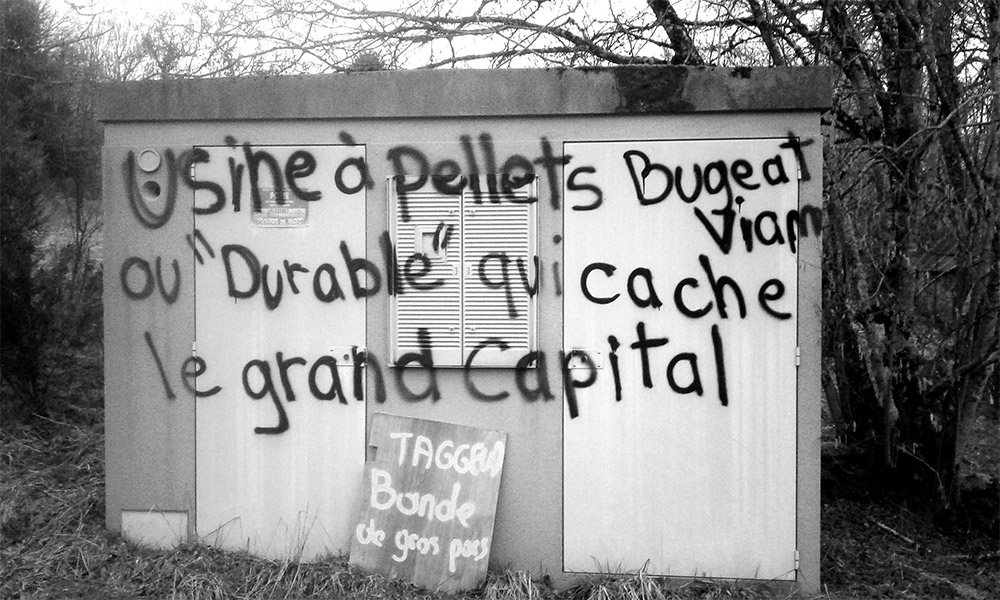 Usine à Pellets Bugeat
Viam
ou "Durable" qui cache
le grand Capital
TAGGEUR
Bande
de gros porcs